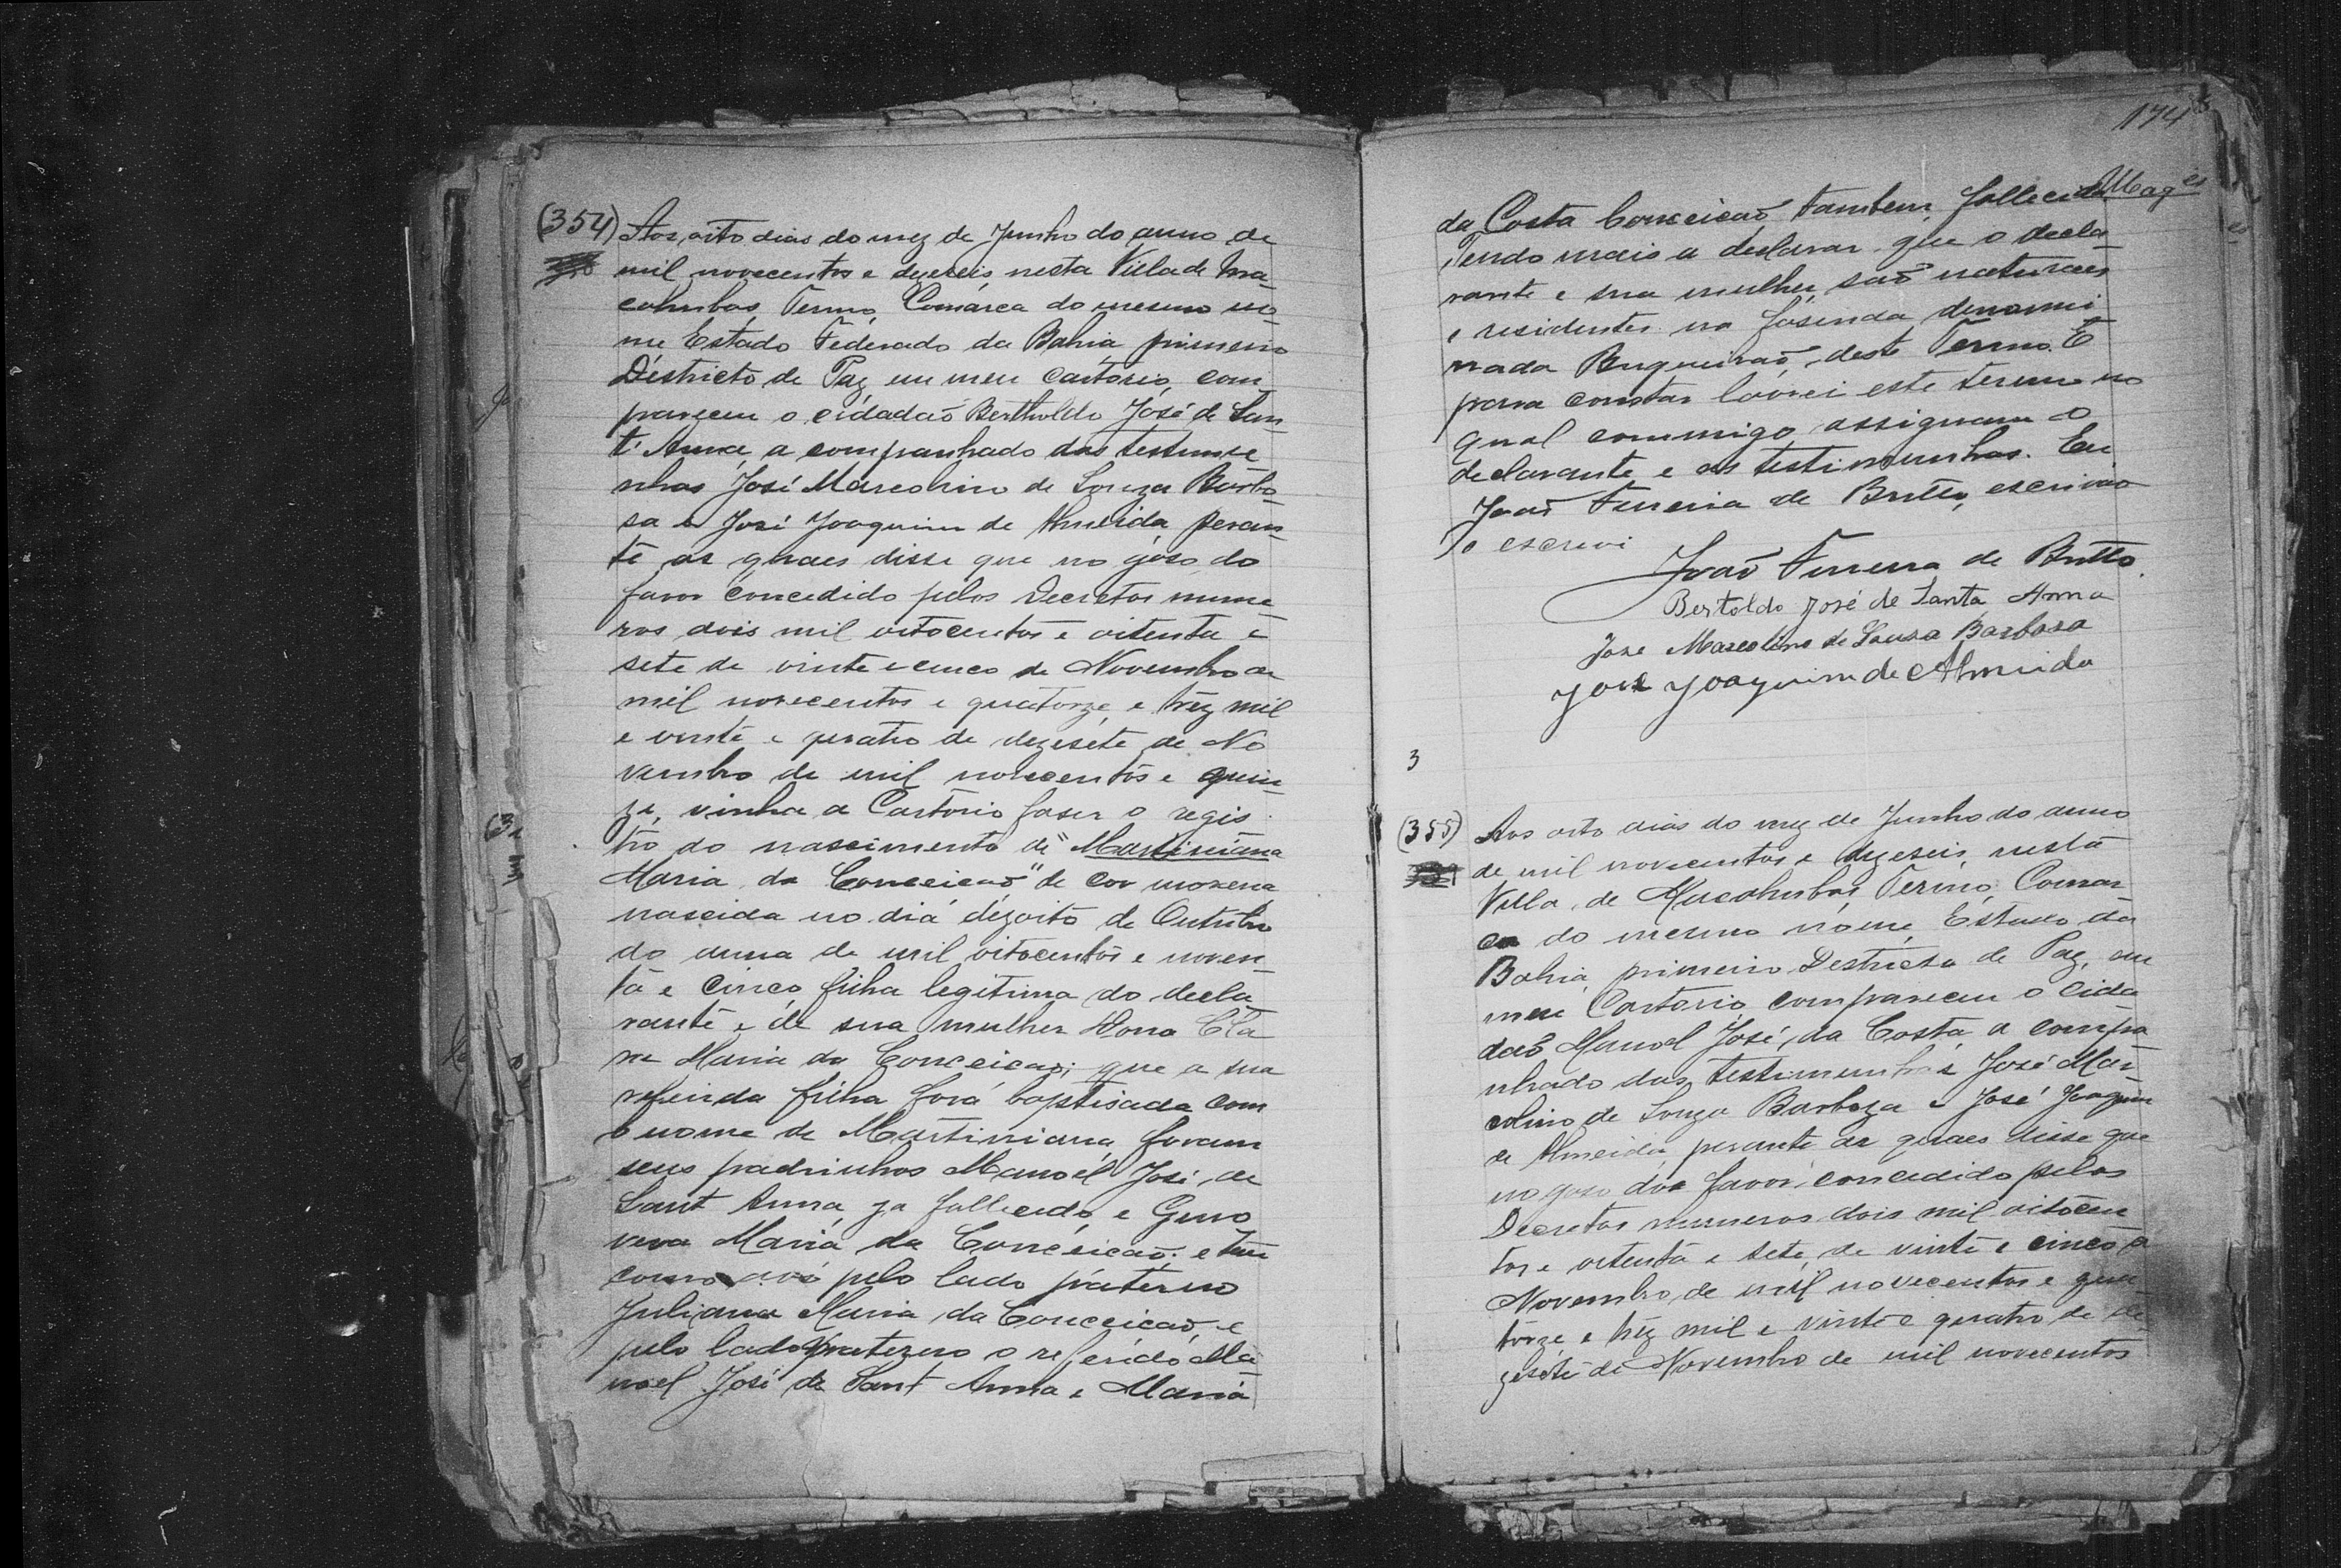 (354) Aos oito dias do mez de Junho do anno de
mil novecentos e dezeseis, nesta Villa de Ma-
cahubas, Termo, Comarca do mesmo no-
me Estado Federado da Bahia primeiro
Destricto de Paz em meu cartorio, com
pareceu o cidadaõ Bertholdo José de San-
t'Anna, a companhado das testemu
nhas José Marcolino de Souza Barbo-
sa e José Joaquim de Almeida, peran-
te as quaes disse que no goso do
favor concedido pelos Decretos nume
ros dois mil oitocentos e oitenta e
sete de vinte e cinco de Novembro de
mil novecentos e quatorze, e trez mil
e vinte e quatro de dezesete de No
vembro de mil novecentos e quin-
ze, vinha a Cartorio faser o regis
tro do nascimento de "Martiniana
Maria da Conceicaõ" de cor morena
nascida no dia dezoito de Outubro
do anno de mil oitocentos e noven-
ta e cinco, filha legitima do decla
rante e de sua mulher Dona Cla
ra Maria da Conceicaõ; que a sua
referida filha fora baptisada com
o nome de Martiniana, foram
seus padrinhos Manoel José de
Sant Anna, ja fallecido, e Geno
veva Maria da Conceicaõ; e tem
como avó pelo lado paterno
Juliana Maria da Conceicaõ, e
pelo lado materno o referido Ma
noel José de Sant Anna e Maria
174
da Costa Conceicaõ, tambem fallecida.
Tendo mais a declarar que o decla-
rante e sua mulher, saõ naturaes
e residentes na fasenda denomi-
nada Buqueiraõ, deste Termo. E
para constar lavrei este termo no
qual commigo assignam o
declarante e as testimunhas. Eu
Joaõ Ferreira de Britto, escrivaõ
o escrevi
Joaõ Ferreira de Britto.
Bertoldo José de Santa Anna
Jose Marcolino de Sousa Barbosa
José Joaquim de Almeida
3
(355) Aos oito dias do mez de Junho do anno
de mil novecentos e dezeseis, nesta
Villa, de Macahubas, Termo, Comar
ca do mesmo nome, Estado da
Bahia, primeiro Destricto de Paz, em
meu Cartorio, compareceu o cida
daõ Manoel José da Costa, a compa
nhado das testimunhas José Mar
colino de Souza Barboza e José Joaquim
de Almeida, perante as quaes disse que
no goso dos favor, concedido pelos
Decretos numeros dois mil oitocen
tos e oitenta e sete, de vinte e cinco de
Novembro, de mil novecentos e qua
torze, e trez mil e vinte e quatro de de
zesete de Novembro de mil novecentos